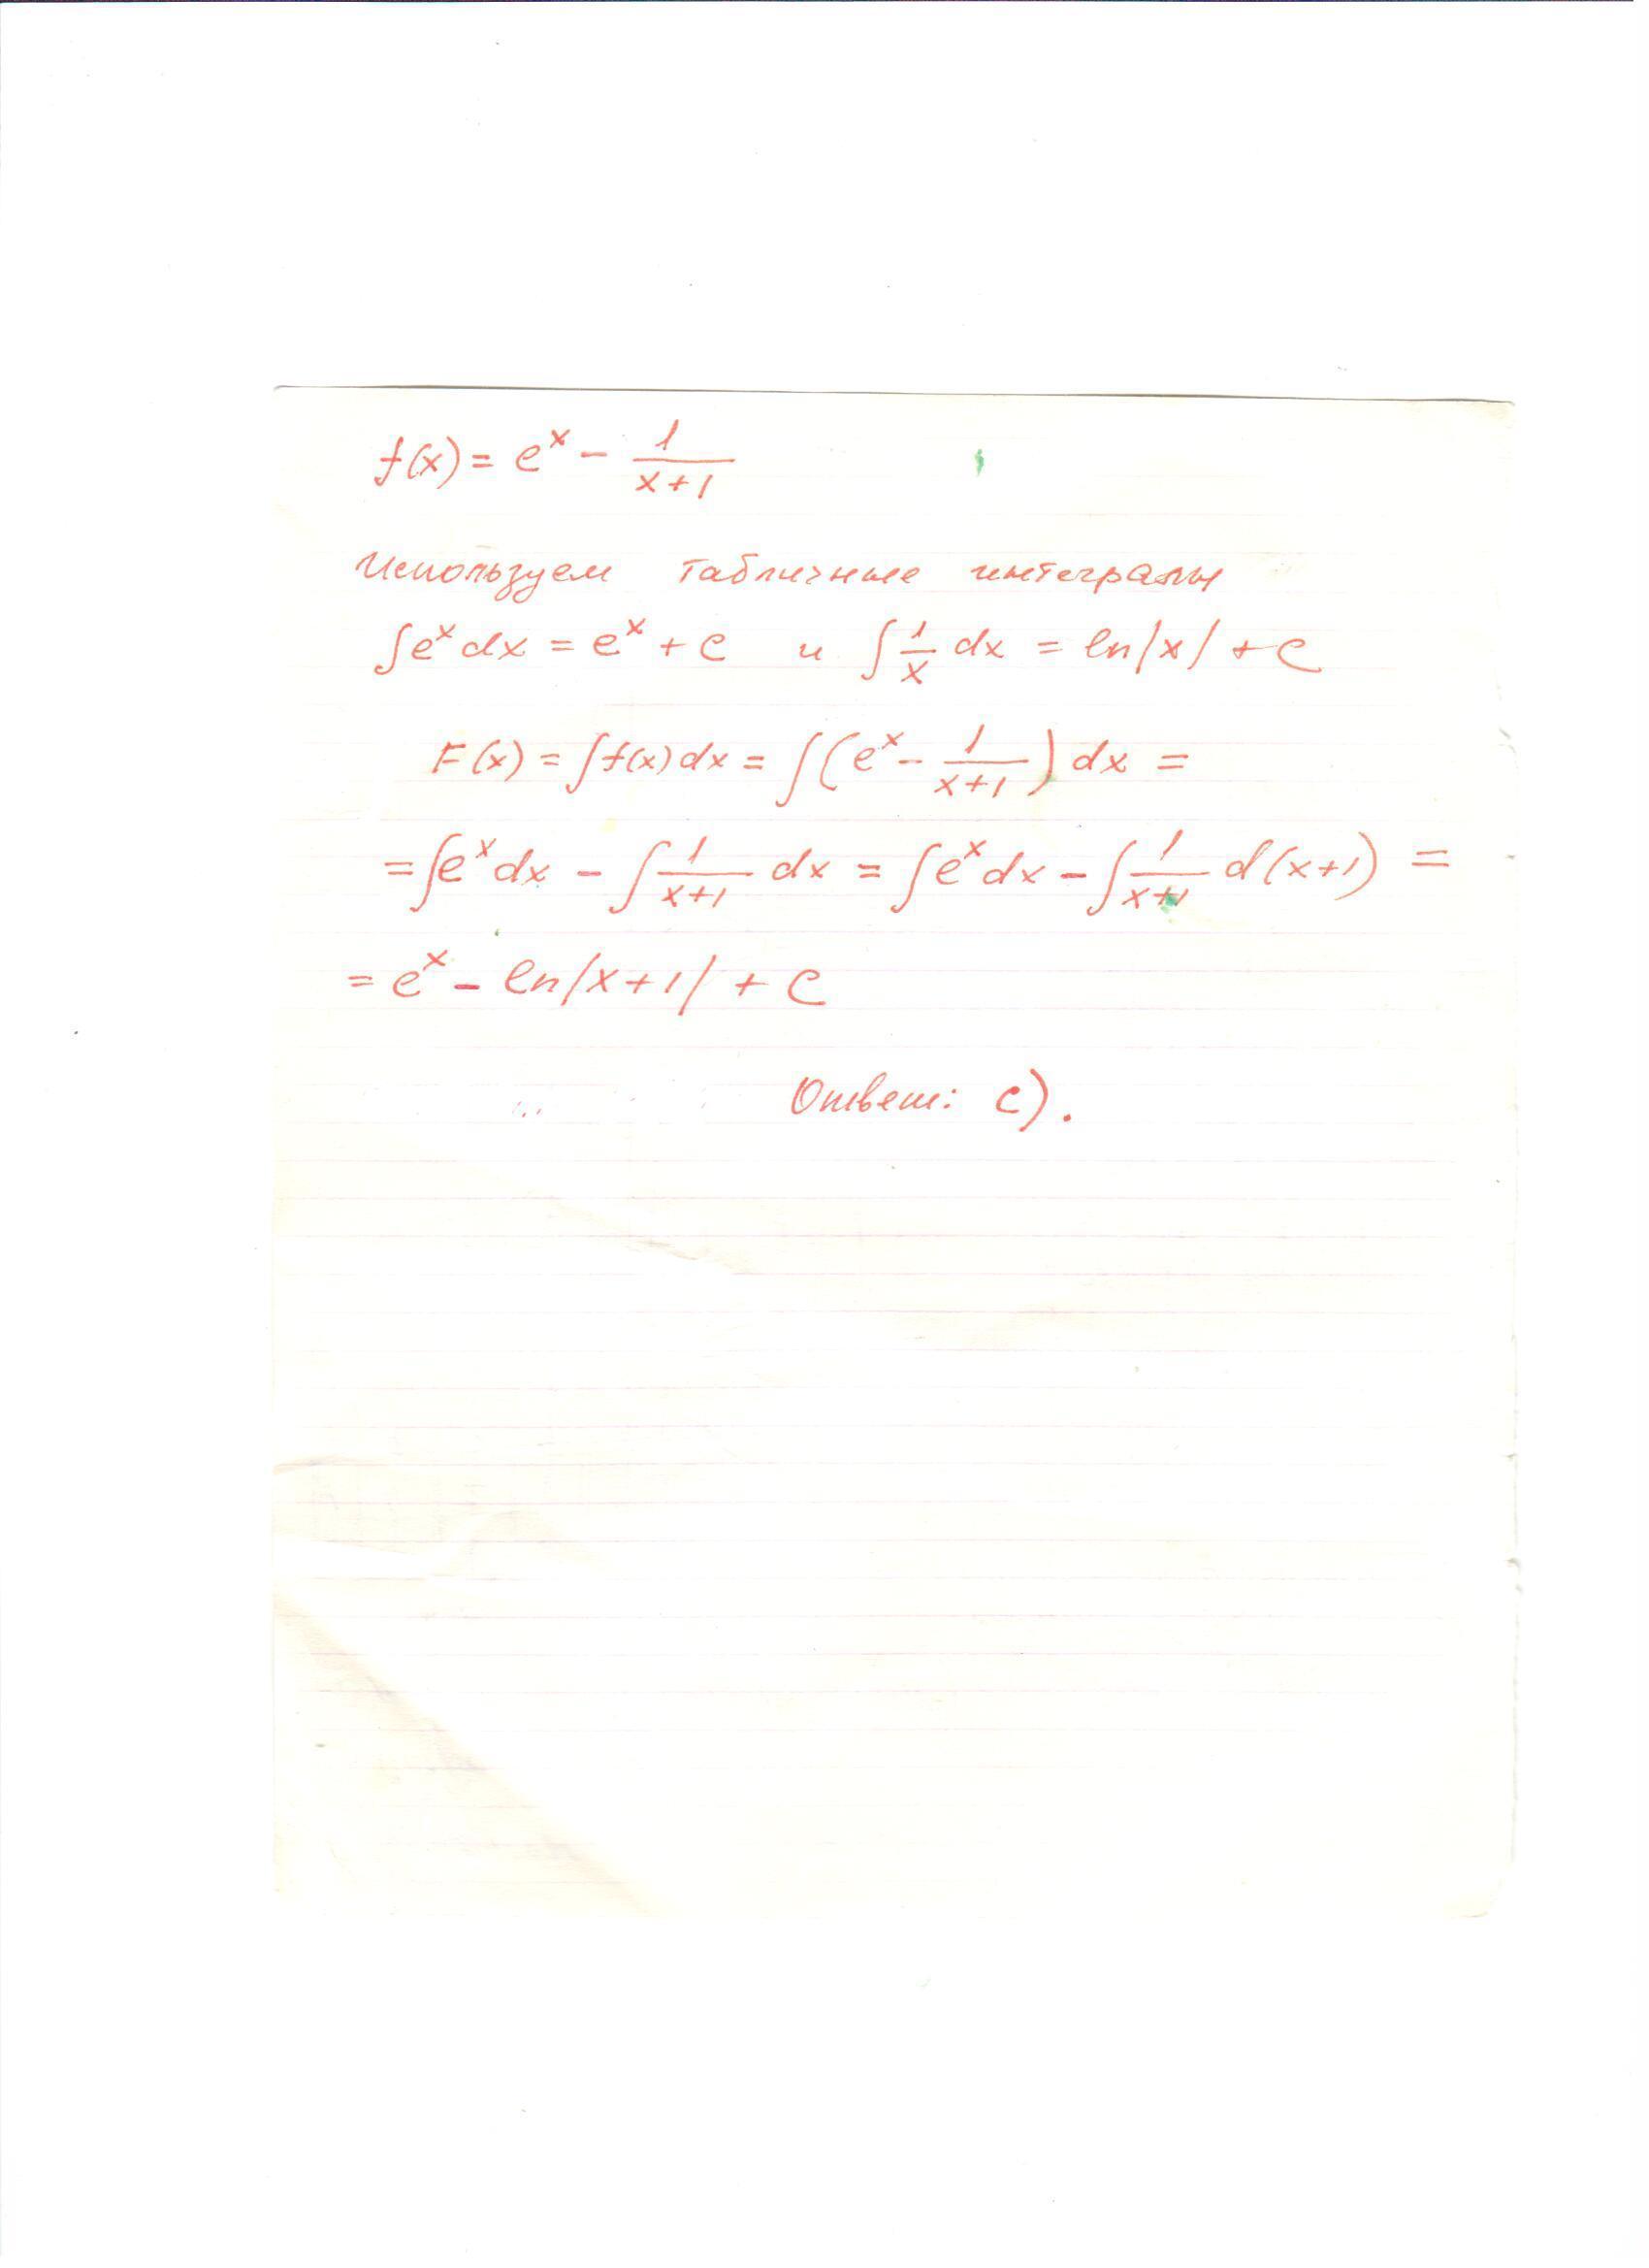 f(x) = e^x - 1/(x+1)
Используем табличные интегралы
∫e^x dx = e^x + C и ∫1/x dx = ln|x| + C
F(x) = ∫f(x)dx = ∫(e^x - 1/(x+1)) dx =
= ∫e^x dx - ∫1/(x+1) dx = ∫e^x dx - ∫1/(x+1) d(x+1) =
= e^x - ln|x+1| + C
Ответ: C).